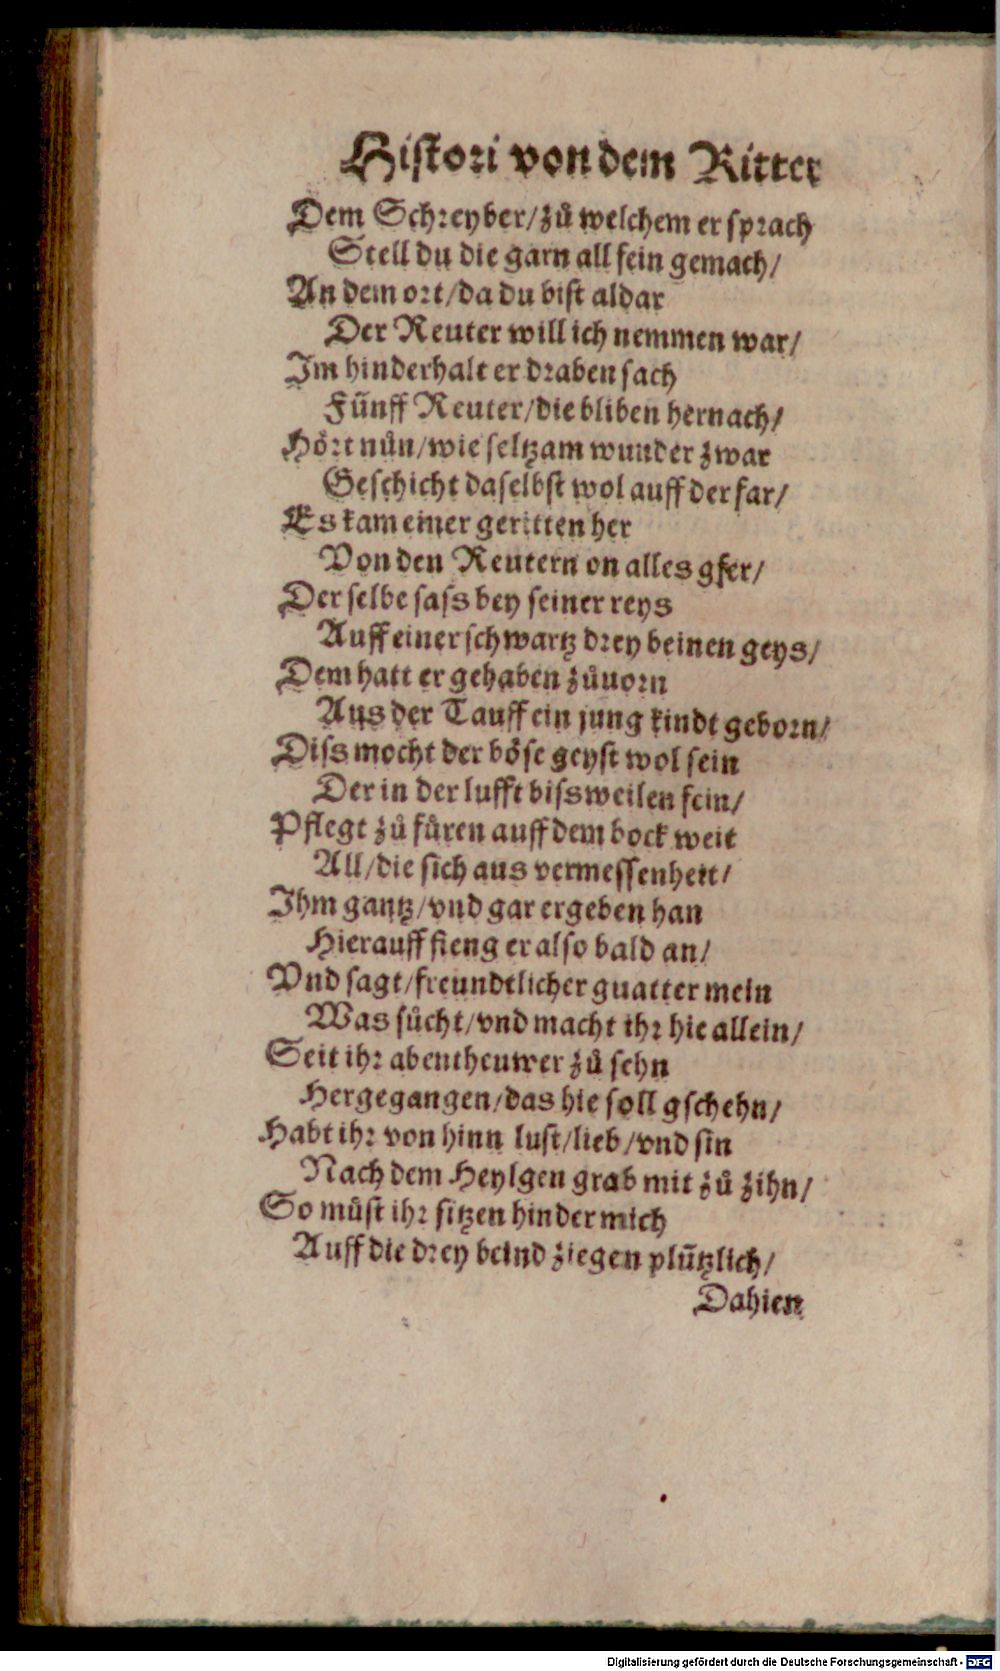 Histori von dem Ritter
Dem Schreyber/zů welchem er sprach
Stell du die garn all fein gemach/
An dem ort/da du bist aldar
Der Reuter will ich nemmen war/
Im hinderhalt er draben sach
Fünff Reuter/die bliben hernach/
Hört nůn/wie seltzam wunder zwar
Geschicht daselbst wol auff der far/
Es kam einer geritten her
Von den Reutern on alles gfer/
Der selbe sass bey seiner reys
Auff einer schwartz drey beinen geys/
Dem hatt er gehaben zůuorn
Aus der Tauff ein jung kindt geborn/
Diss mocht der böse geyst wol sein
Der in der lufft bissweilen fein/
Pflegt zů fůren auff dem bock weit
All/die sich aus vermessenheit/
Ihm gantz/vnd gar ergeben han
Hierauff fieng er also bald an/
Vnd sagt/freundtlicher guatter mein
Was sůcht/vnd macht ihr hie allein/
Seit ihr abentheuwer zů sehn
Hergegangen/das hie soll gschehn/
Habt ihr von hinn lust/lieb/vnd sin
Nach dem Heylgen grab mit zů zihn/
So můst ihr sitzen hinder mich
Auff die drey beind ziegen plützlich/
Dahien
Digitalisierung gefördert durch die Deutsche Forschungsgemeinschaft - DFG